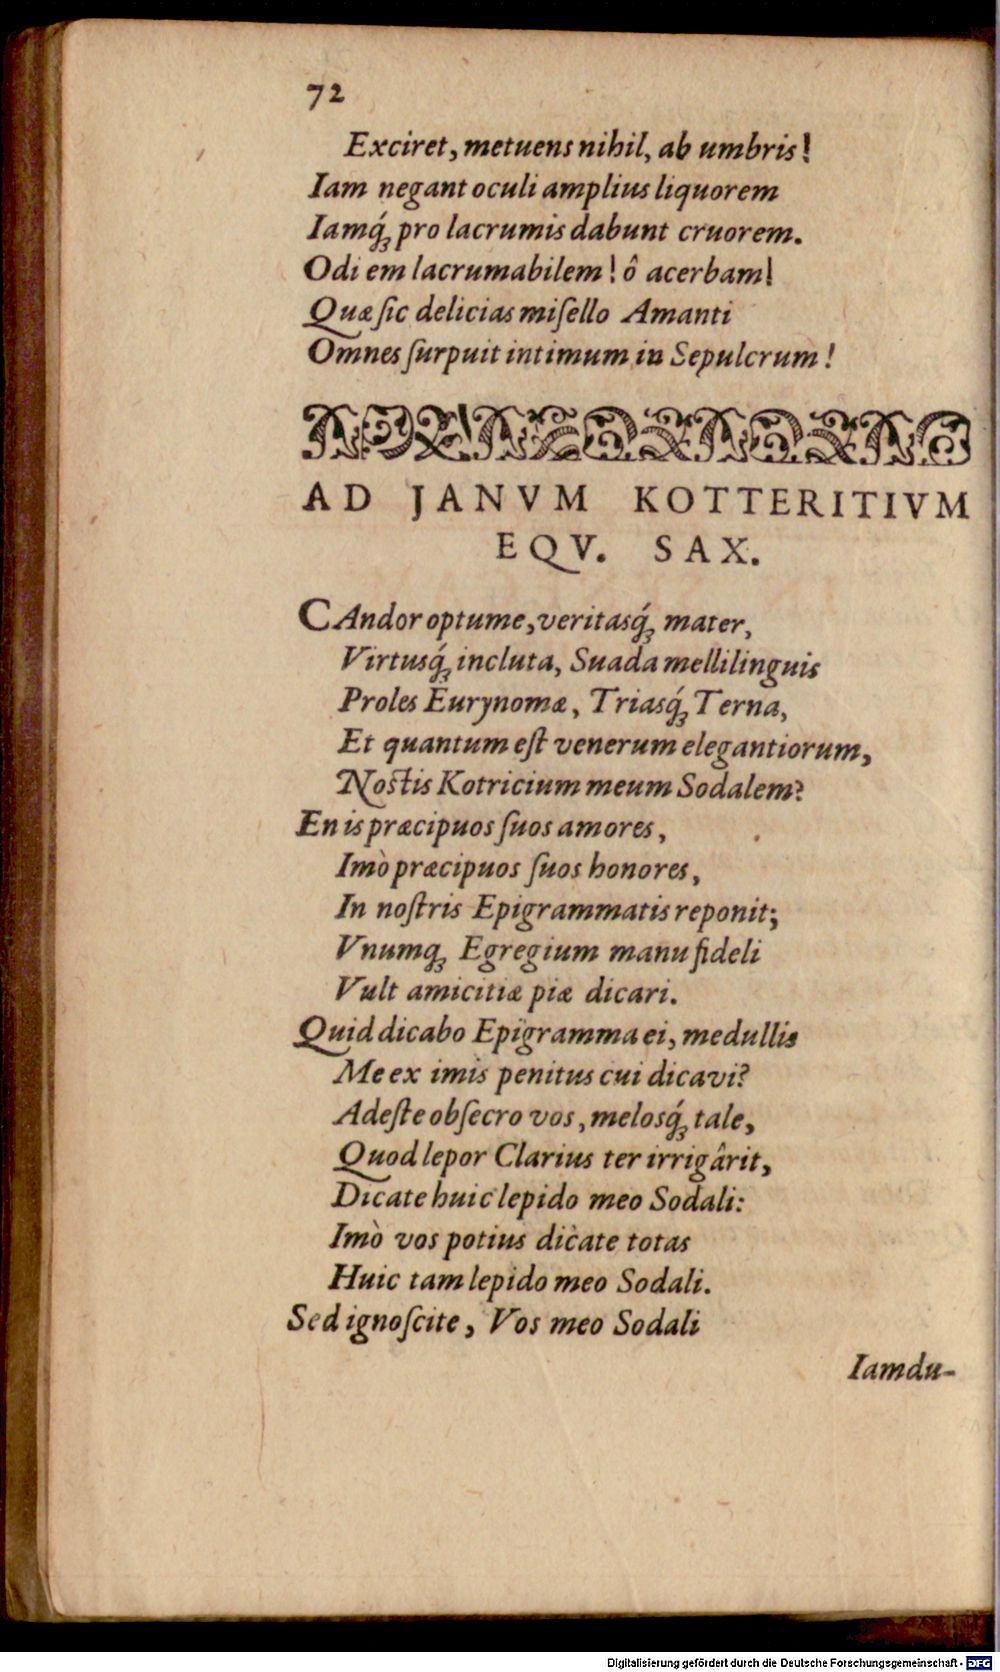 72
Exciret, metuens nihil, ab umbris!
Iam negant oculi amplius liquorem
Iamq́ꝫ pro lacrumis dabunt cruorem.
Odi em lacrumabilem! ô acerbam!
Quæ ſic delicias miſello Amanti
Omnes ſurpuit intimum in Sepulcrum!
AD JANVM KOTTERITIVM
EQV. SAX.
CAndor optume, veritasq́ꝫ mater,
Virtusq́ꝫ incluta, Suada mellilinguis
Proles Eurynomæ, Triasq́ꝫ Terna,
Et quantum eſt venerum elegantiorum,
Noſtis Kotricium meum Sodalem?
En is præcipuos ſuos amores,
Imò præcipuos ſuos honores,
In noſtris Epigrammatis reponit;
Vnumqꝫ Egregium manu fideli
Vult amicitiæ piæ dicari.
Quid dicabo Epigramma ei, medullis
Me ex imis penitus cui dicavi?
Adeſte obſecro vos, melosq́ꝫ tale,
Quod lepor Clarius ter irrigârit,
Dicate huic lepido meo Sodali:
Imò vos potius dicate totas
Huic tam lepido meo Sodali.
Sed ignoſcite, Vos meo Sodali
Iamdu-
Digitalisierung gefördert durch die Deutsche Forschungsgemeinschaft - DFG